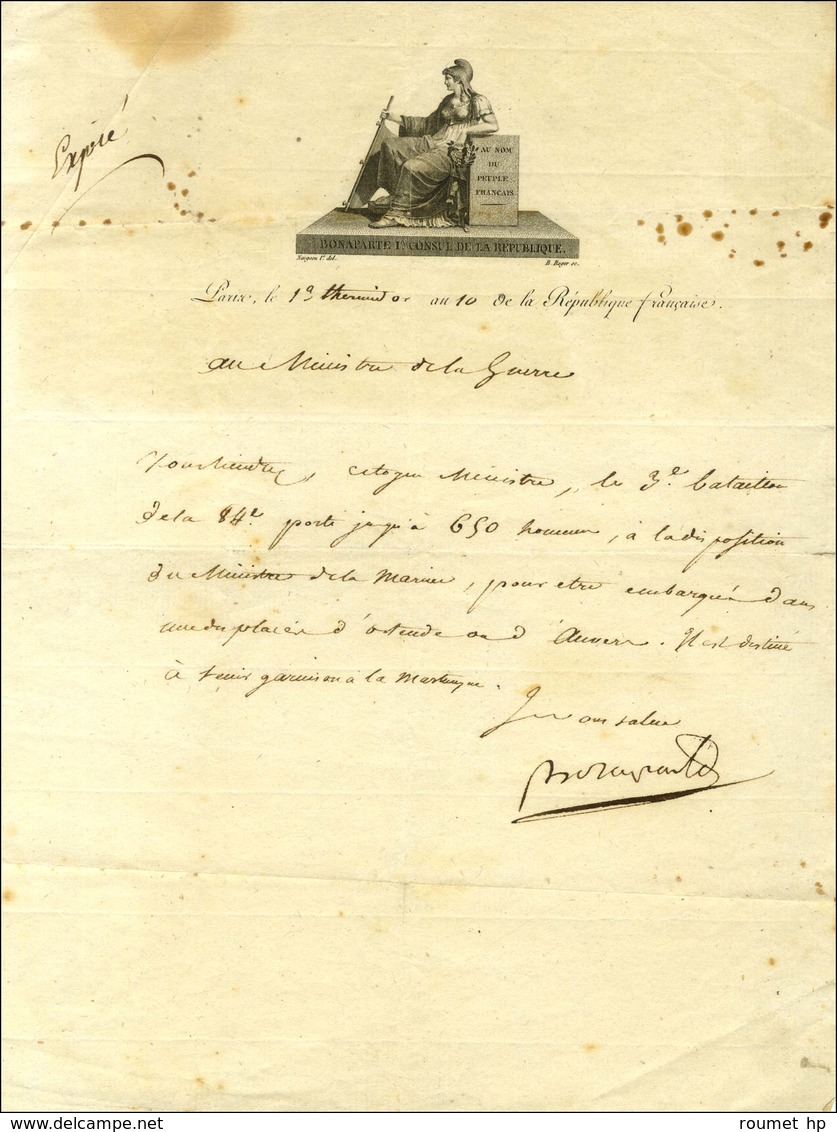 Expédié
AU NOM
DU
PEUPLE
FRANÇAIS.
BONAPARTE Ier CONSUL DE LA RÉPUBLIQUE.
Naigeon l'é del.
B. Roger sc.
Paris, le 1er thermidor an 10 de la République française.
au Ministre de la Guerre
Vous tiendrez, citoyen Ministre, le 3e bataillon
de la 84e porté jusqu'à 650 hommes, à la disposition
du Ministre de la Marine, pour etre embarqué dans
une des places d'ostende ou d'Anvers. Il est destiné
à tenir garnison à la Martinique.
Je vous salue
Bonaparte
roumet hp